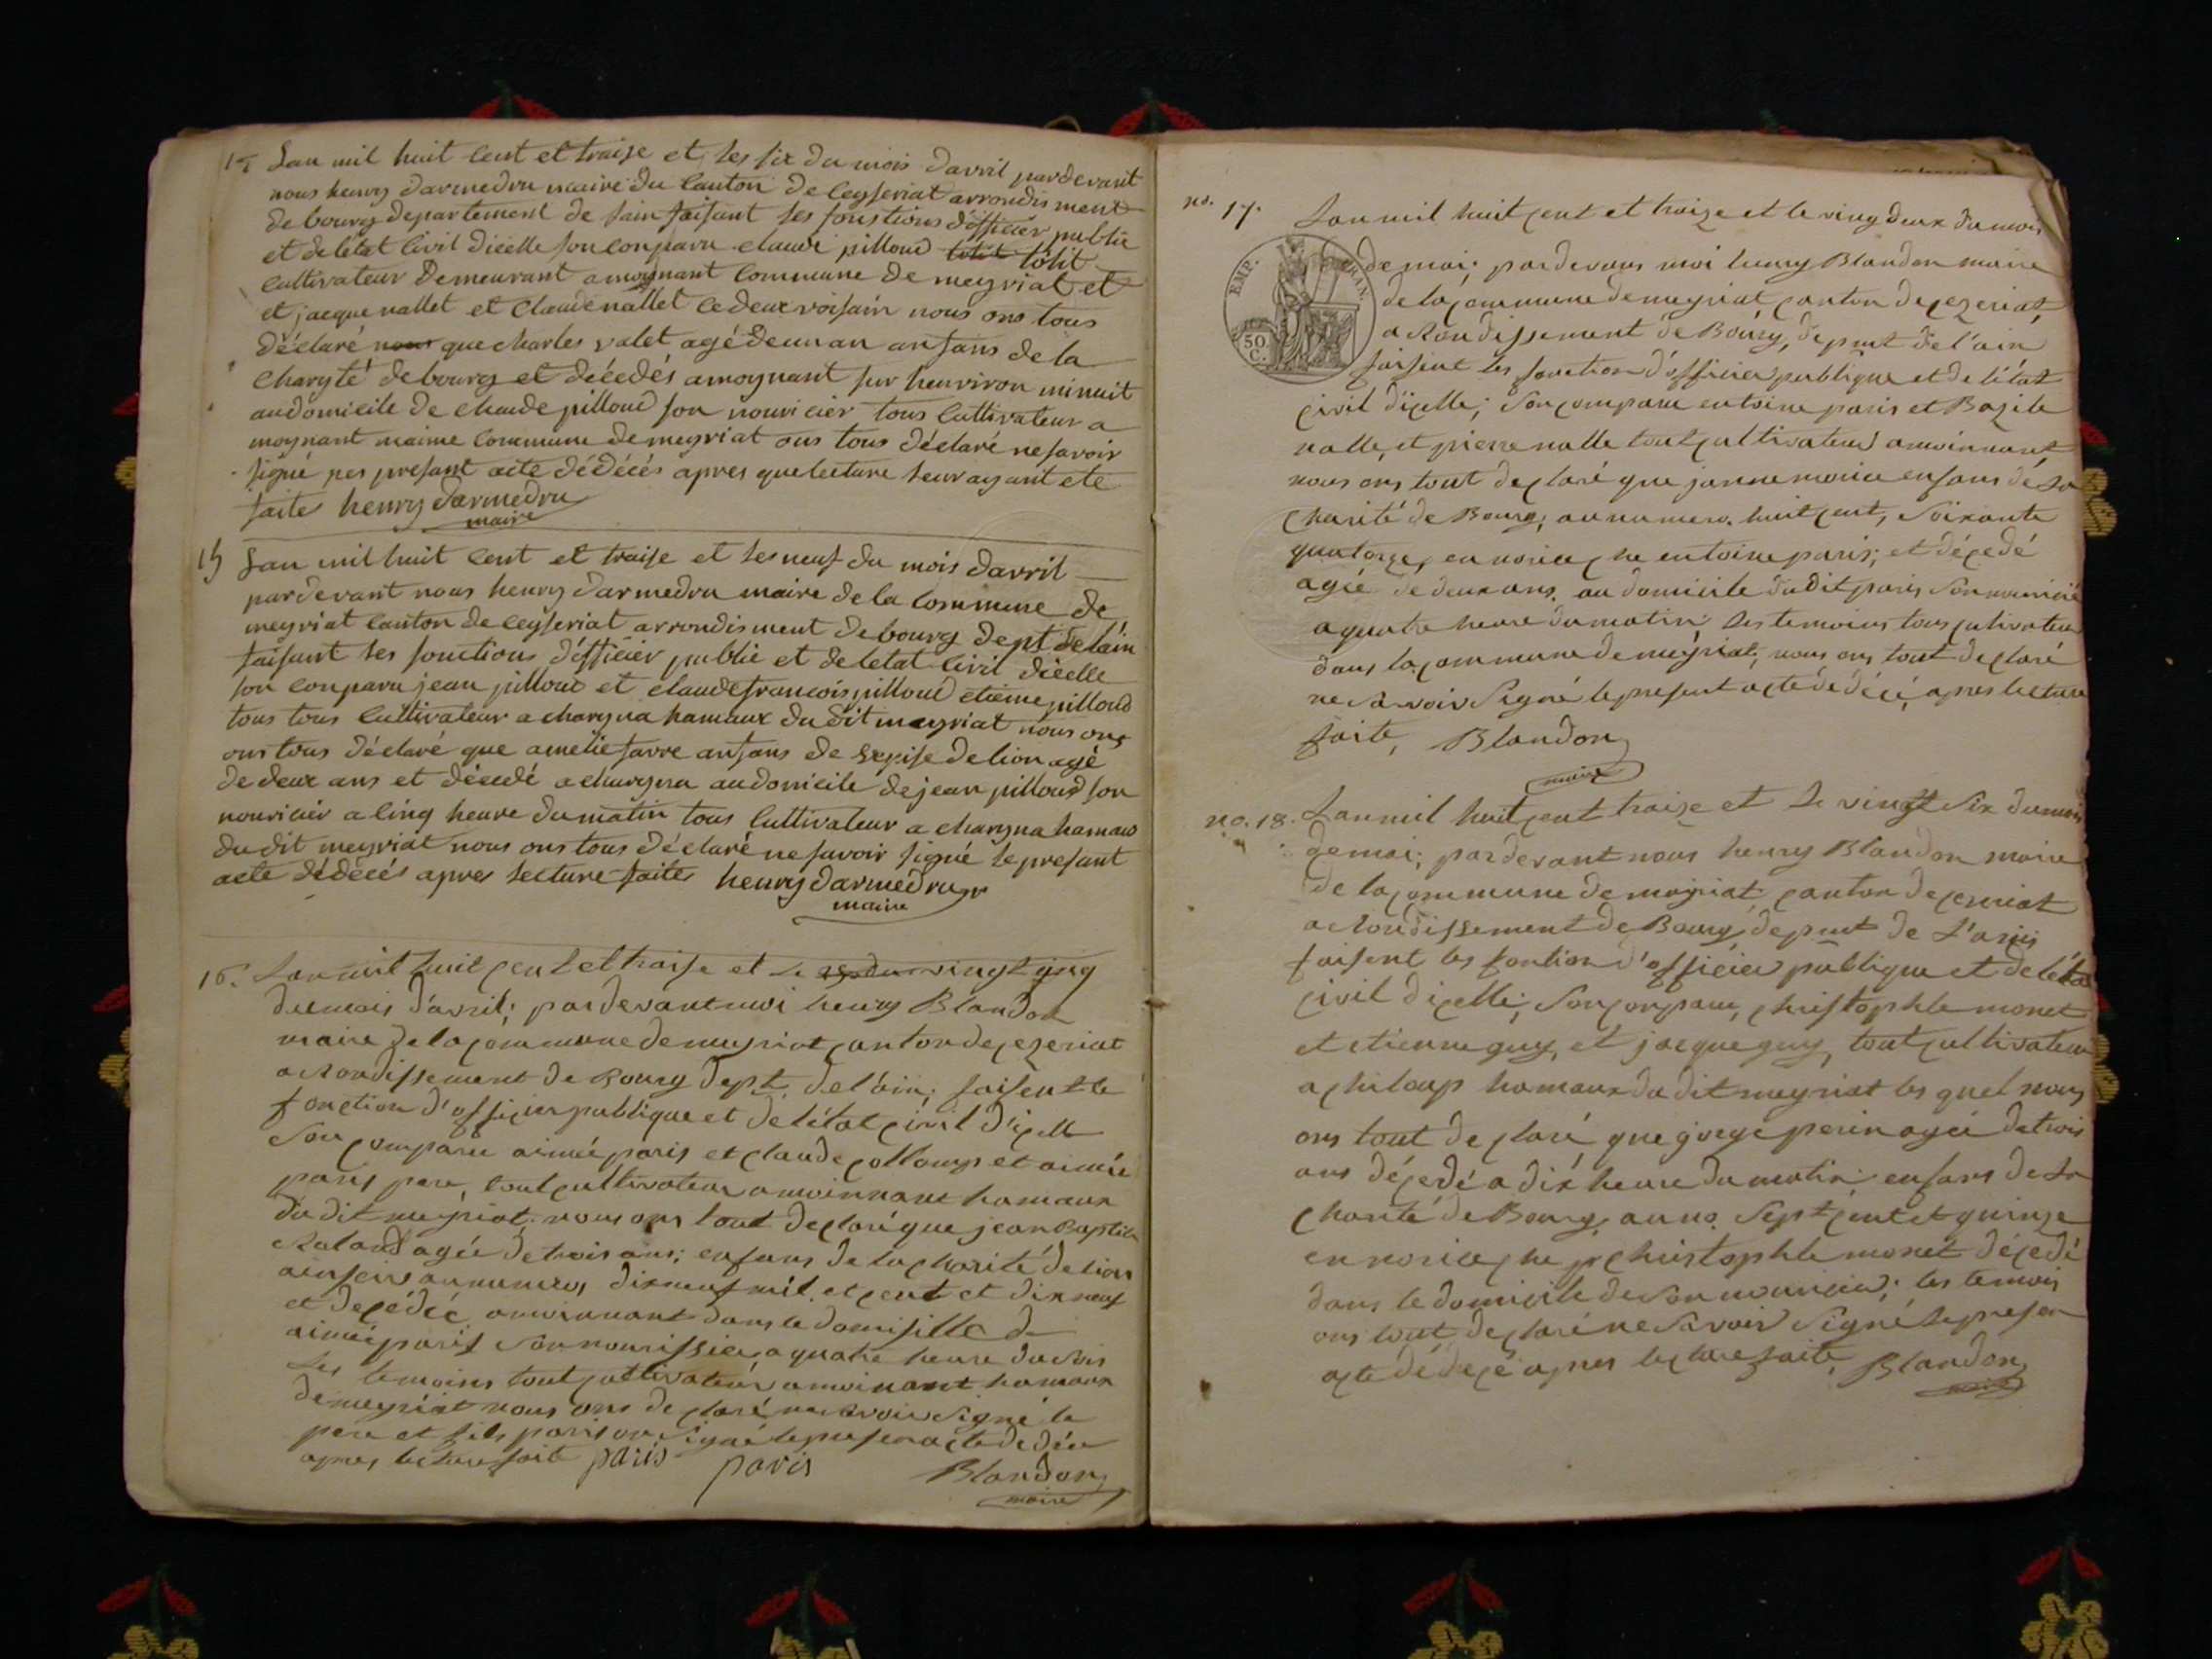 Lan mil huit Cent et traise et les six du mois davril pardevant
nous henry darmedru maire du Canton de Ceyseriat arrondisment
de bourg departement de lain faisant les fonstions dofficier public
et de létat Civil dicelle son conparu claude pilloud tôlit
Cultivateur demeurant a moynant Commune de meyriat et
et jacque nallet et Claude nallet ce deux voisain nous ons tous
déclaré nous que charles valet agé de un an ansans de la
Charyté de bourg et décedés a moynant sur henviron minuit
au domicile de Claude pilloud son nouricier tous Cultivateur a
moynant maime Commune de meyriat ons tous déclaré ne savoir
signé pes presant acte dédécés apres que lecture leur ayant ete
faites henry darmedru
maire
15 Lan mil huit Cent et traise et les neuf du mois davril
pardevant nous henry darmedru maire de la Commune de
meyriat Canton de Ceyseriat arrondisment de bourg dept de lain
faisant les fonctions dófficier public et de letat Civil dicelle
son conparu jean pilloud et claude francois pilloud etieine pilloud
tous tous Cultivateur a chargna hamaux du dit meyriat nous ons
ons tous déclaré que amelie favre ansans de de lion agé
de deux ans et décedé a chargna au domicile de jean pilloud son
nouricier a Cinq heure du matin tous Cultivateur a chargna hamaux
du dit meyriat nous ons tous déclaré ne savoir signé le presant
acte dédécés apres lecture faites henry darmedru
maire
16. Lan mil huit cent et traise et le vingt cinq
du mois d'avril; pardevant moi henry Blandon
maire de la commune de meyriat canton de cezeriat
arondissement de Bourg dept de l'ain; faisent le
fonction d'officier publique et de l'état civil d'icelle
Son comparu aimé paris et claude colloup et aimée
paris pere, tout cultivateur a moinnant hamaux
du dit meyriat nous ons tout declaré que jean Baptiste
Roland agée de trois ans; enfans de la charité de lion
ainseris au numero, dixneuf mil et cent et dix neuf
et decédée a moinnant dans le domisille de
aimée paris Son nourissier a quatre heure du soir
Les temoins tout cultivateur a moinant hamaux
de meyriat nous ons declaré ne savoir Signé le
pere et fils paris on Signé le presen acte de dée
apres lecture faite paris paris Blandon
maire
no. 17. Lan mil huit cent et traize et le ving deux du mois
de mai; pardevans moi henry Blandon maire
EMP. FRAN.
50 C.
de la commune de meyriat canton de cezeriat
arondissement de Bourg, depmt de l'ain
faisent les fonction d'officier publique et de l'état
civil dicelle; Son comparu entoine paris et Bazile
nalle, et pierre nalle tout cultivateur a moinnant
nous ons tout declaré que janne monica enfans de la
charité de Bourg; au numero. huit cent, Soixante
quatorze, en norice che entoine paris; et décedé
agée de deux ans. au domicile du dit paris Son nourricié
a quatre heure du matin, les temoins tous cultivateur
dans la commune de meyriat; nous ons tout declaré
ne Savoir Signé le present acte de décé, apres lecture
faite, Blandon
maire
no. 18. Lan mil huit cent traize et le vingt Six du mois
de mai; pardevant nous henry Blandon maire
de la commune de meyriat canton de cezeriat
arondissement de Bourg, depmt de L'ain
faisent les fontion d'officier publique et de l'état
civil dicelle; Son conparu, christophle monet
et etienne guy, et jacque guy, tout cultivateur
a chiloup hamaux du dit meyriat les quel nous
ons tout declaré que jorge perin agée de trois
ans décedé a dix heure du matin; enfans de la
charité de Bourg, au no. Sept cent et quinze
en norice che christophle monet décedé
dans le domicile de Son nouricier; les temoin
ons tout declaré ne Savoir Signé le presen
acte de decé apres lecture faite, Blandon
maire